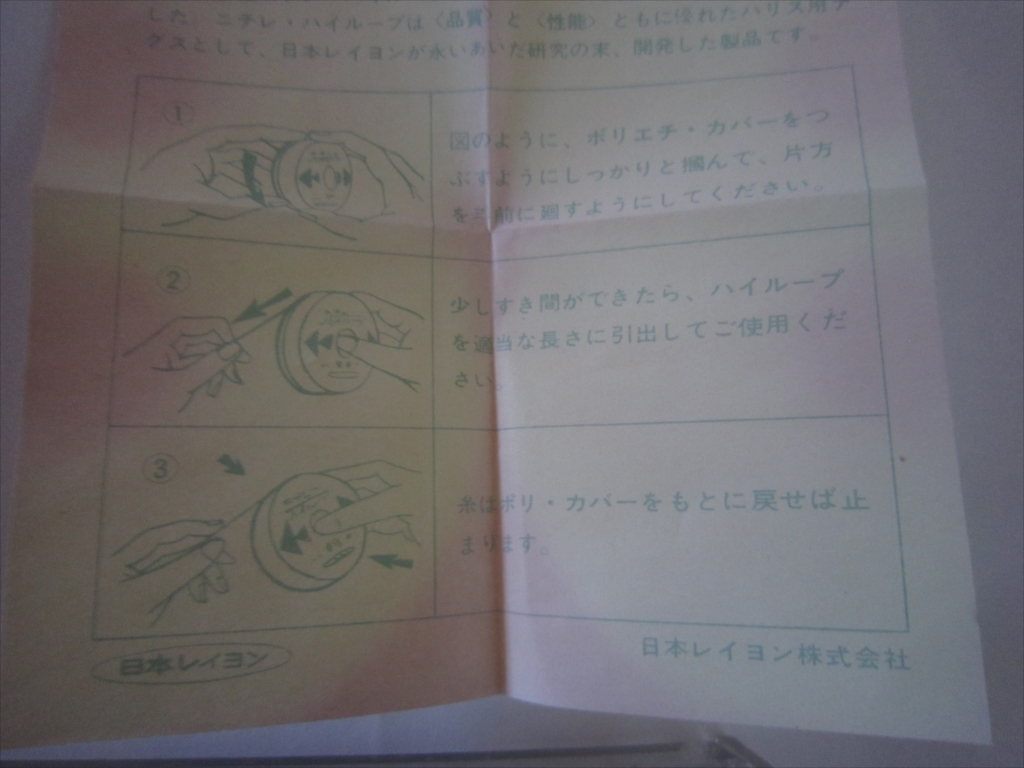 した。ニチレ・ハイループは〈品質〉と〈性能〉ともに優れたハリス用テ
グスとして、日本レイヨンが永いあいだ研究の末、開発した製品です。
①
図のように、ポリエチ・カバーをつ
ぶすようにしっかりと掴んで、片方
を手前に廻すようにしてください。
②
少しすき間ができたら、ハイループ
を適当な長さに引出してご使用くだ
さい。
③
糸はポリ・カバーをもとに戻せば止
まります。
日本レイヨン
日本レイヨン株式会社